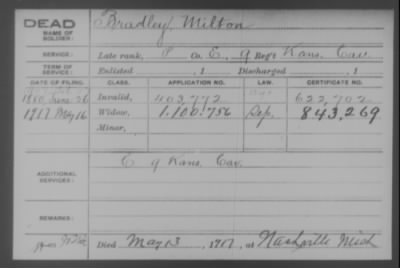 DEAD Bradley, Milton
NAME OF
SOLDIER:
SERVICE: Late rank, P Co. E, 9 Reg't Kans. Cav.
TERM OF
SERVICE: Enlisted , 1 Discharged , 1
DATE OF FILING. CLASS. APPLICATION NO. LAW. CERTIFICATE NO.
1880, June 26 Invalid, 403,772 622,702
1917 May 16 Widow, 1.100.756 Sep. 843,269
Minor,
E 9 Kans. Cav.
ADDITIONAL
SERVICES:
REMARKS:
Died May 3, 1917, at Nashville Mich